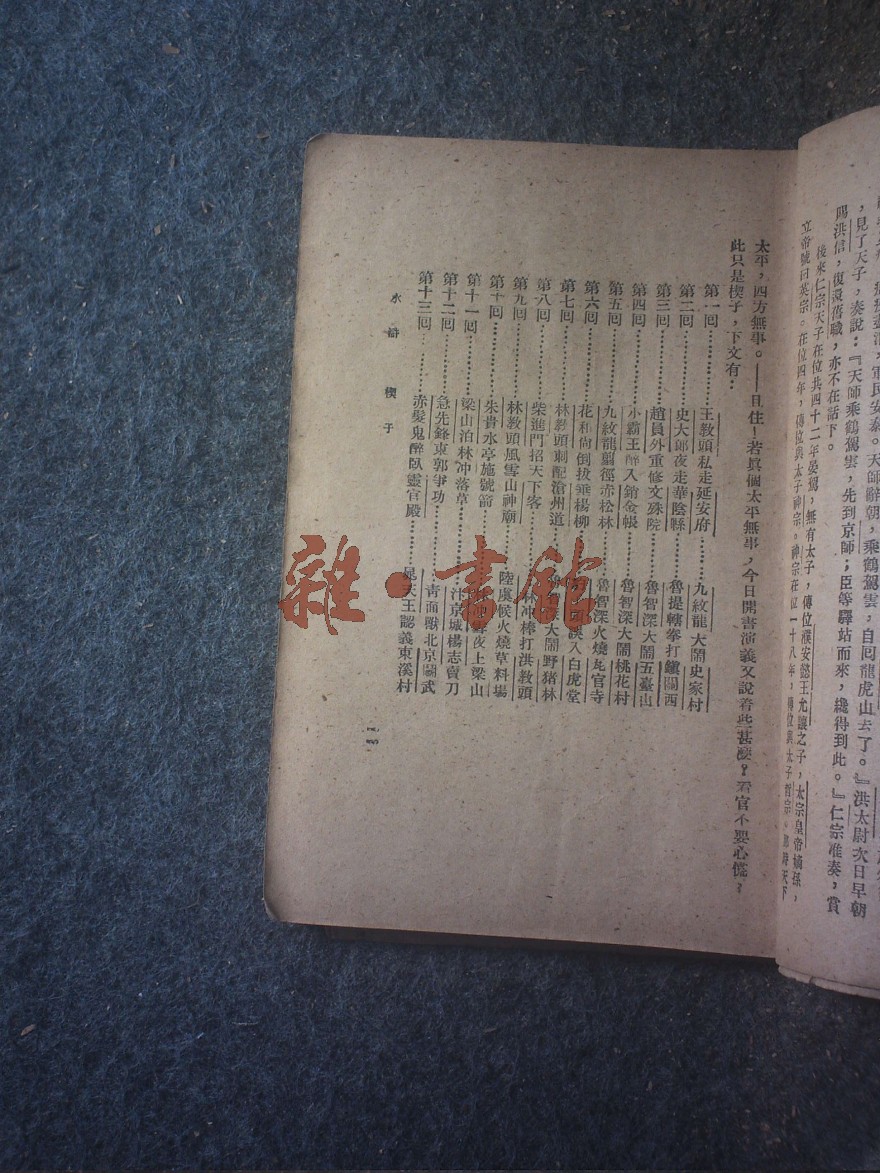 見了天子，奏說：『天師乘鶴駕雲，先到京師；臣等驛站而來，纔得到此。』仁宗准奏，賞
賜洪信，復還舊職，亦不在話下。
後來仁宗天子在位共四十二年晏駕，無有太子，傳位濮安懿王允讓之子，太宗皇帝嫡孫，
立帝號曰英宗。在位四年，傳位與太子神宗。神宗在位一十八年，傳位與太子哲宗。那時天下
太平，四方無事。——且住！若眞個太平無事，今日開書演義又說着些甚麼？看官不要心慌，
此只是楔子，下文有：
第一回…………王教頭私走延安府…………九紋龍大鬧史家村
第二回…………史大郎夜走華陰縣…………魯提轄拳打鎭關西
第三回…………趙員外重修文殊院…………魯智深大鬧五臺山
第四回…………小霸王醉入銷金帳…………魯智深大鬧桃花村
第五回…………九紋龍翦徑赤松林…………魯智深火燒瓦官寺
第六回…………花和尚倒拔垂楊柳…………誤入白虎堂
第七回…………林教頭刺配滄州道…………智深大鬧野猪林
第八回…………柴進門招天下客…………林冲棒打洪教頭
第九回…………林教頭風雪山神廟…………陸虞候火燒草料場
第十回…………朱貴水亭施號箭…………雪夜上梁山
第十一回…………梁山泊林冲落草…………汴京城楊志賣刀
第十二回…………急先鋒東郭爭功…………靑面獸北京鬭武
第十三回…………赤髮鬼醉臥靈官殿…………晁天王認義東溪村
水滸 楔子
雜·書館